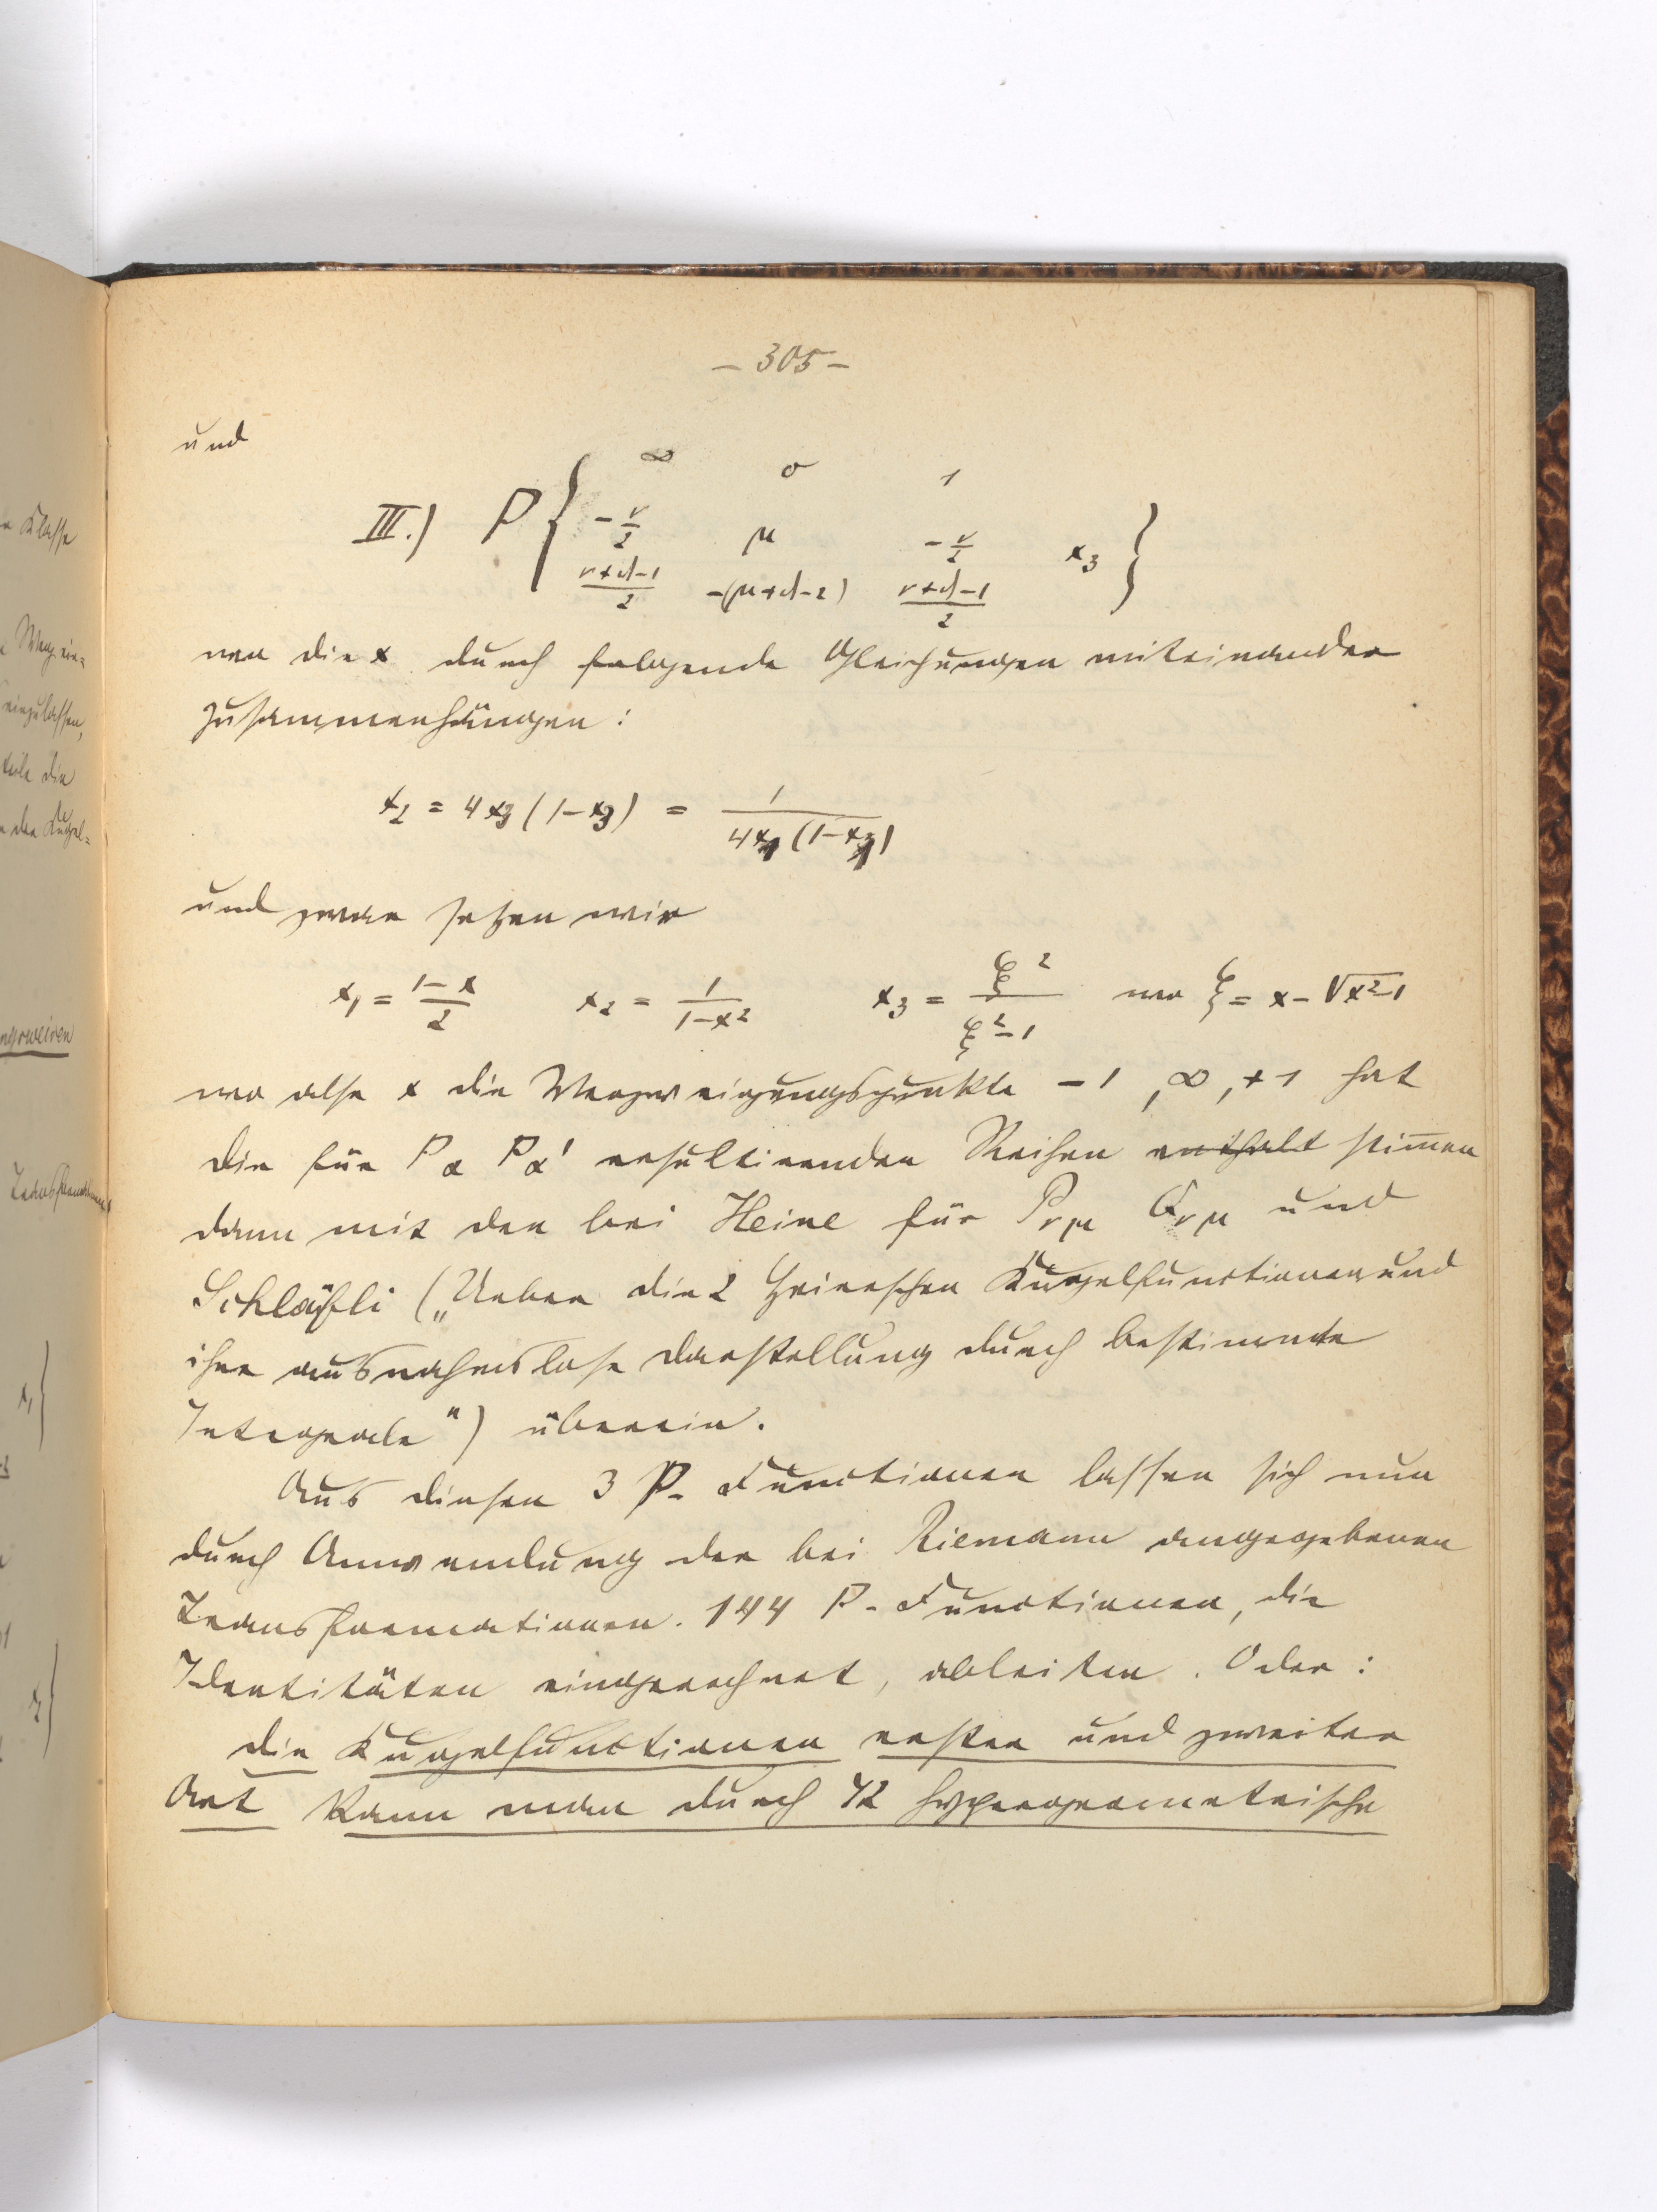 – 305 –
und
∞ 0 1
III.) P { -ν/2 μ -ν/2 x₃ }
(ν+d-1)/2 -(μ+d-2) (ν+d-1)/2
wo die x durch folgende Gleichungen miteinander
zusammenhängen:
x₂ = 4x₃(1-x₃) = 1/(4x₁(1-x₁))
und zwar setzen wir
x₁ = (1-x)/2 x₂ = 1/(1-x²) x₃ = ξ²/(ξ²-1) wo ξ = x-√(x²-1)
wo also x die Verzweigungspunkte -1, ∞, +1 hat
die für Pα Pα' resultirenden Reihen enthalt stim̄en
dann mit den bei Heine für Pνμ Qνμ und
Schläfli („Ueber die 2 Heineschen Kugelfunctionen und
ihre ausnahmslose Darstellung durch bestimmte
Integrale") überein.
Aus diesen 3 P-Functionen lassen sich nun
durch Anwendung der bei Riemann angegebenen
Transformationen. 144 P-Functionen, die
Identitäten eingerechnet, ableiten. Oder:
die Kugelfunctionen erster und zweiter
Art kann man durch 72 hypergeometrische
n Klasse
einzulassen,
teile die
n der Kugel=
x₁}